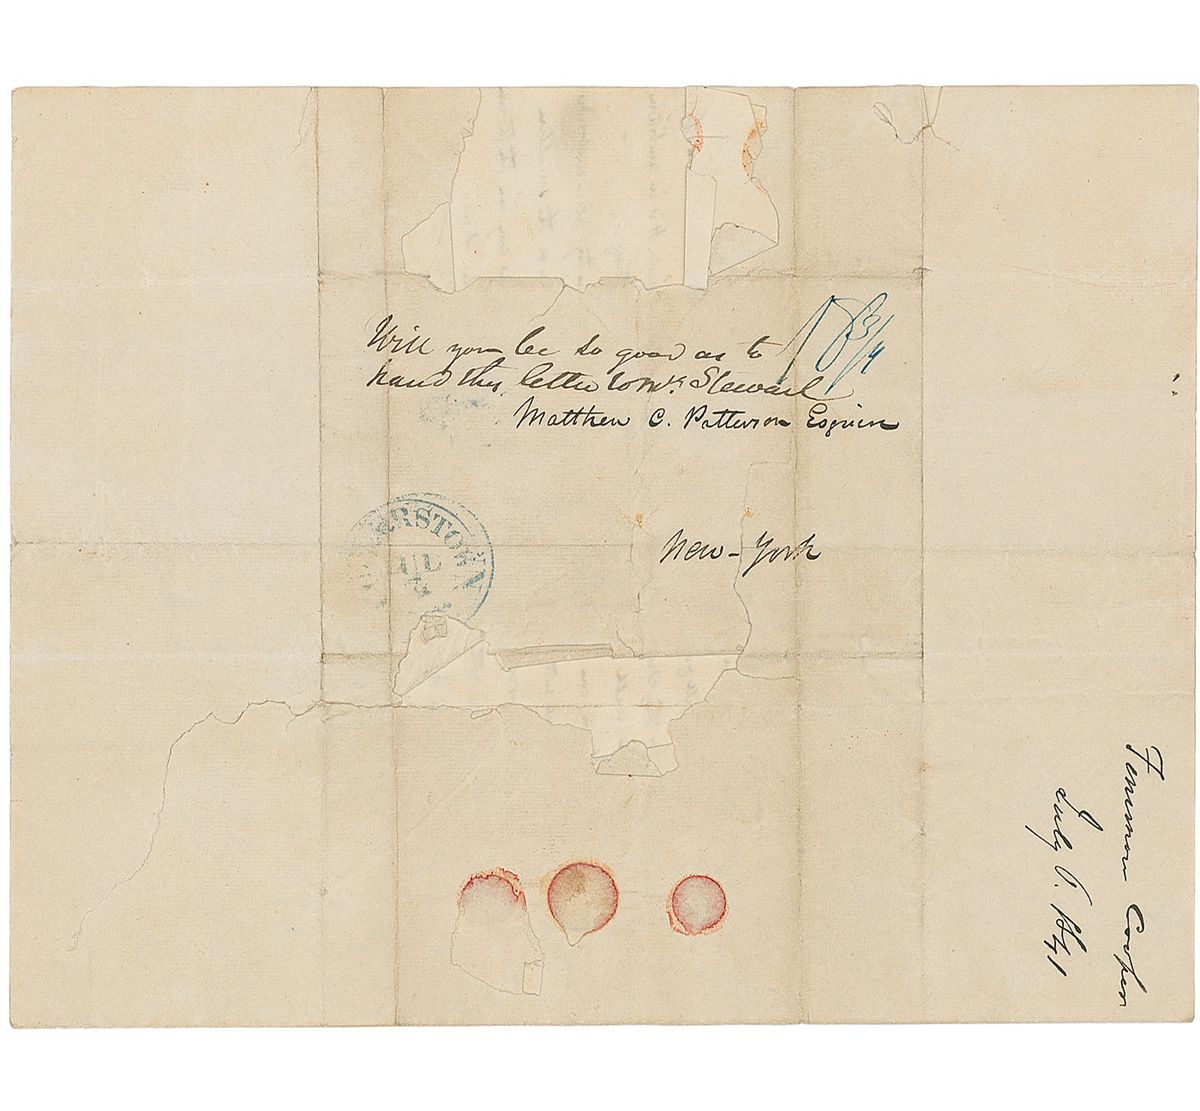 Will you be so good as to
hand this letter to Mr. Stewart
Matthew C. Patterson Esquire
New-York
18 3/4
ERSTOWN
UL
Fenimore Cooper
July 1841